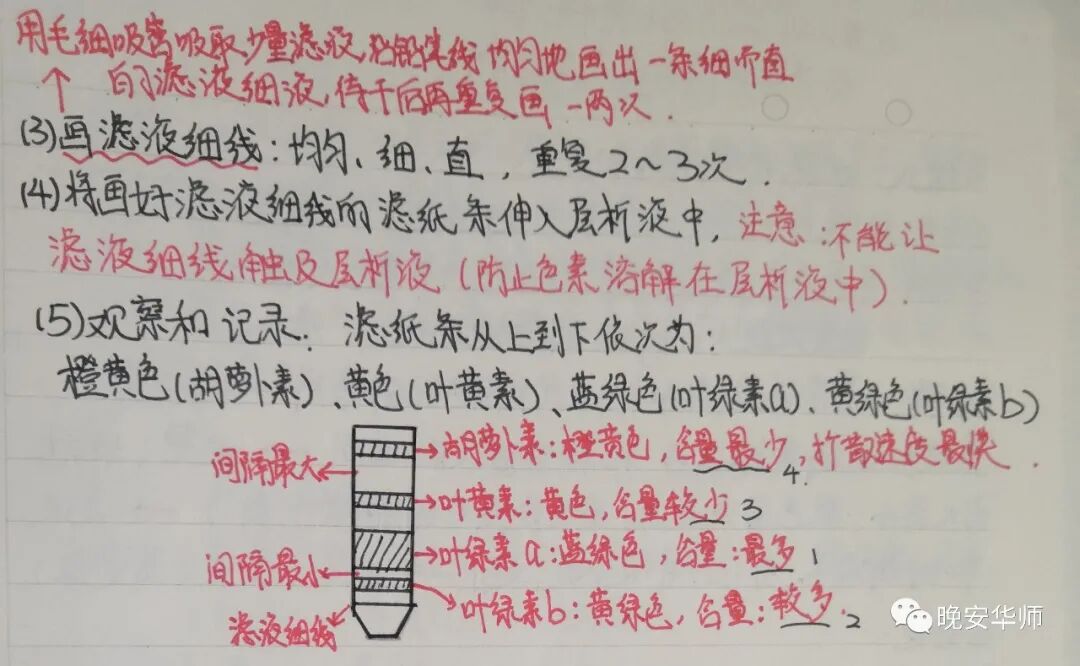 用毛细吸管吸取少量滤液,沿铅笔线均匀地画出一条细而直
的滤液细液,待干后再重复画一两次.
(3)画滤液细线:均匀、细、直,重复2~3次.
(4)将画好滤液细线的滤纸条伸入层析液中,注意:不能让
滤液细线触及层析液(防止色素溶解在层析液中).
(5)观察和记录:滤纸条从上到下依次为:
橙黄色(胡萝卜素)、黄色(叶黄素)、蓝绿色(叶绿素a)、黄绿色(叶绿素b)
胡萝卜素:橙黄色,含量最少,扩散速度最快.
4.
间隔最大
叶黄素:黄色,含量较少 3
叶绿素a:蓝绿色,含量:最多 1
间隔最小
叶绿素b:黄绿色,含量:较多. 2
滤液细线
晚安华师